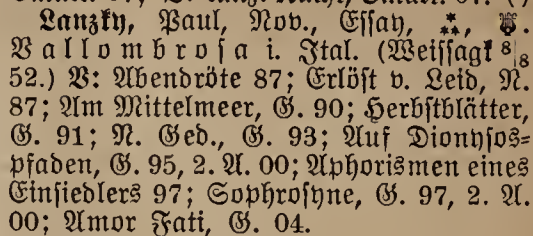 Lanzky, Paul, Nov., Essay, ⁂, 
Vallombrosa i. Ital. (Weissagk 8|8
52.) V: Abendröte 87; Erlöst v. Leid, N.
87; Am Mittelmeer, G. 90; Herbstblätter,
G. 91; N. Ged., G. 93; Auf Dionysos=
pfaden, G. 95, 2. A. 00; Aphorismen eines
Einsiedlers 97; Sophrosyne, G. 97, 2. A.
00; Amor Fati, G. 04.